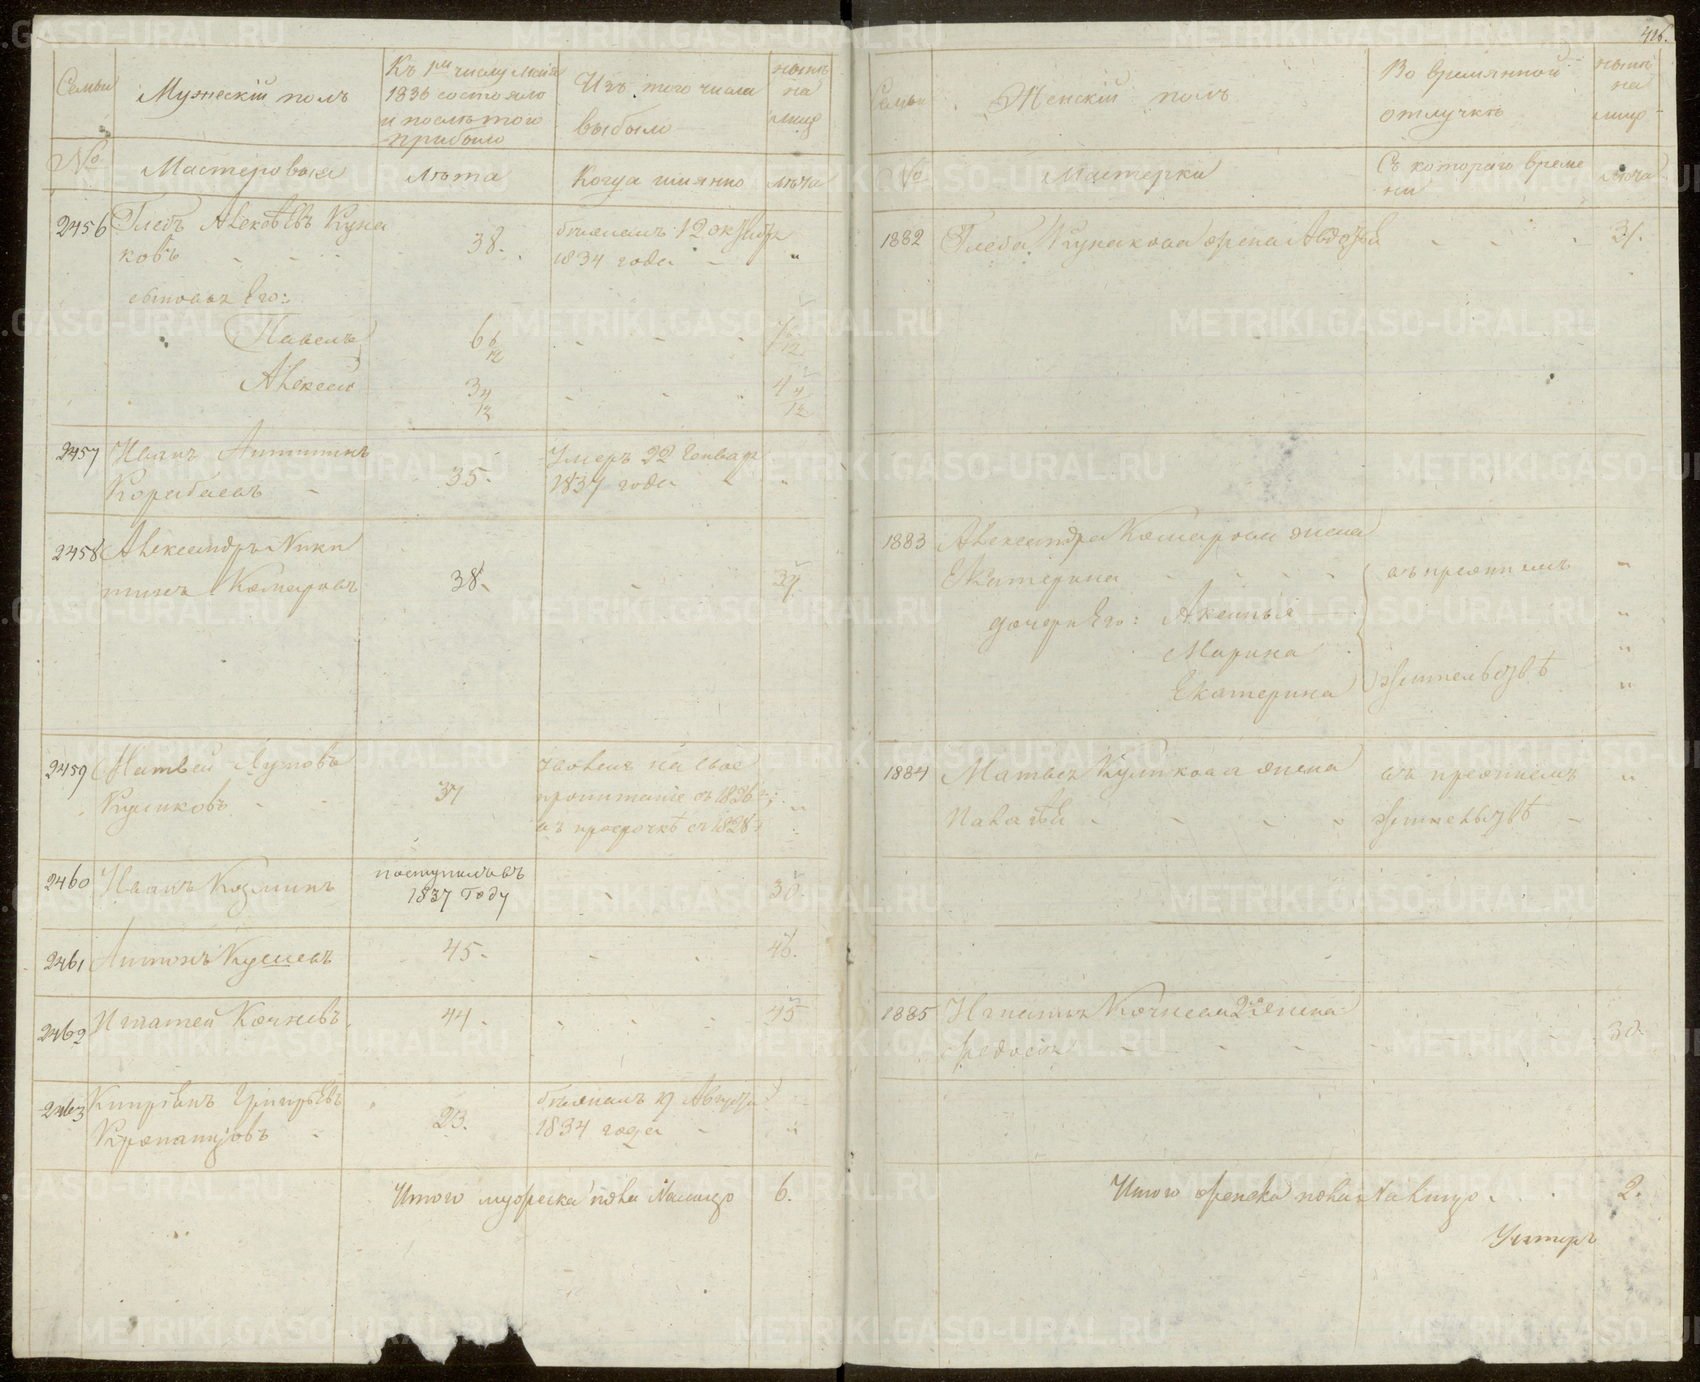 Семьи
Мужескій полъ
Къ 1му числу
1836 состояло
и послѣ того
прибыло
Изъ того числа
выбыло
нынѣ
на
лицо
№
Мастеровыя
лѣта
Когда имянно
лѣта
2456 Глебъ Алексѣевъ Куна
ковъ
38.
бѣжалъ 12 октября
1834 года
"
сыновья Его:
Павелъ
6 6/12
7 6/12
Алексей
3 4/12
4 4/12
2457 Иванъ
Корабаевъ
35.
Умеръ 22 Генваря
1837 года
"
2458 Александръ Ники
тинъ Комаровъ
38.
39.
2459 Матвей
Куликовъ
37
уволенъ на свое
пропитаніе съ 1826 г;
въ просрочкѣ съ 1828 г
"
2460 Иванъ Козминъ
поступилъ въ
1837 году
30.
2461 Антонъ Кушевъ
45.
46.
2462 Игнатей Кочневъ
44.
45
2463 Кипріянъ Григорьевъ
23.
бѣжалъ 19 Августа
1834 года
"
Итого мужеска пола Налицо 6.
416.
Семьи
Женскій полъ
Во времянной
отлучкѣ
нынѣ
на
лицо
№
Мастерки
Съ котораго време
ни
лѣта
1882 Глеба Кунакова жена Авдотья
31.
1883 Александра Комарова жена
Екатерина
въ прежнемъ
"
дочери Его: Аксинья
"
Марина
"
Екатерина
жительствѣ
"
1884 Матвея Куликова жена
въ прежнемъ
"
Пелагѣя
жительствѣ
1885 Игнатья Кочнева 2я жена
Федосья
30.
Итого женска пола Налицо
2.